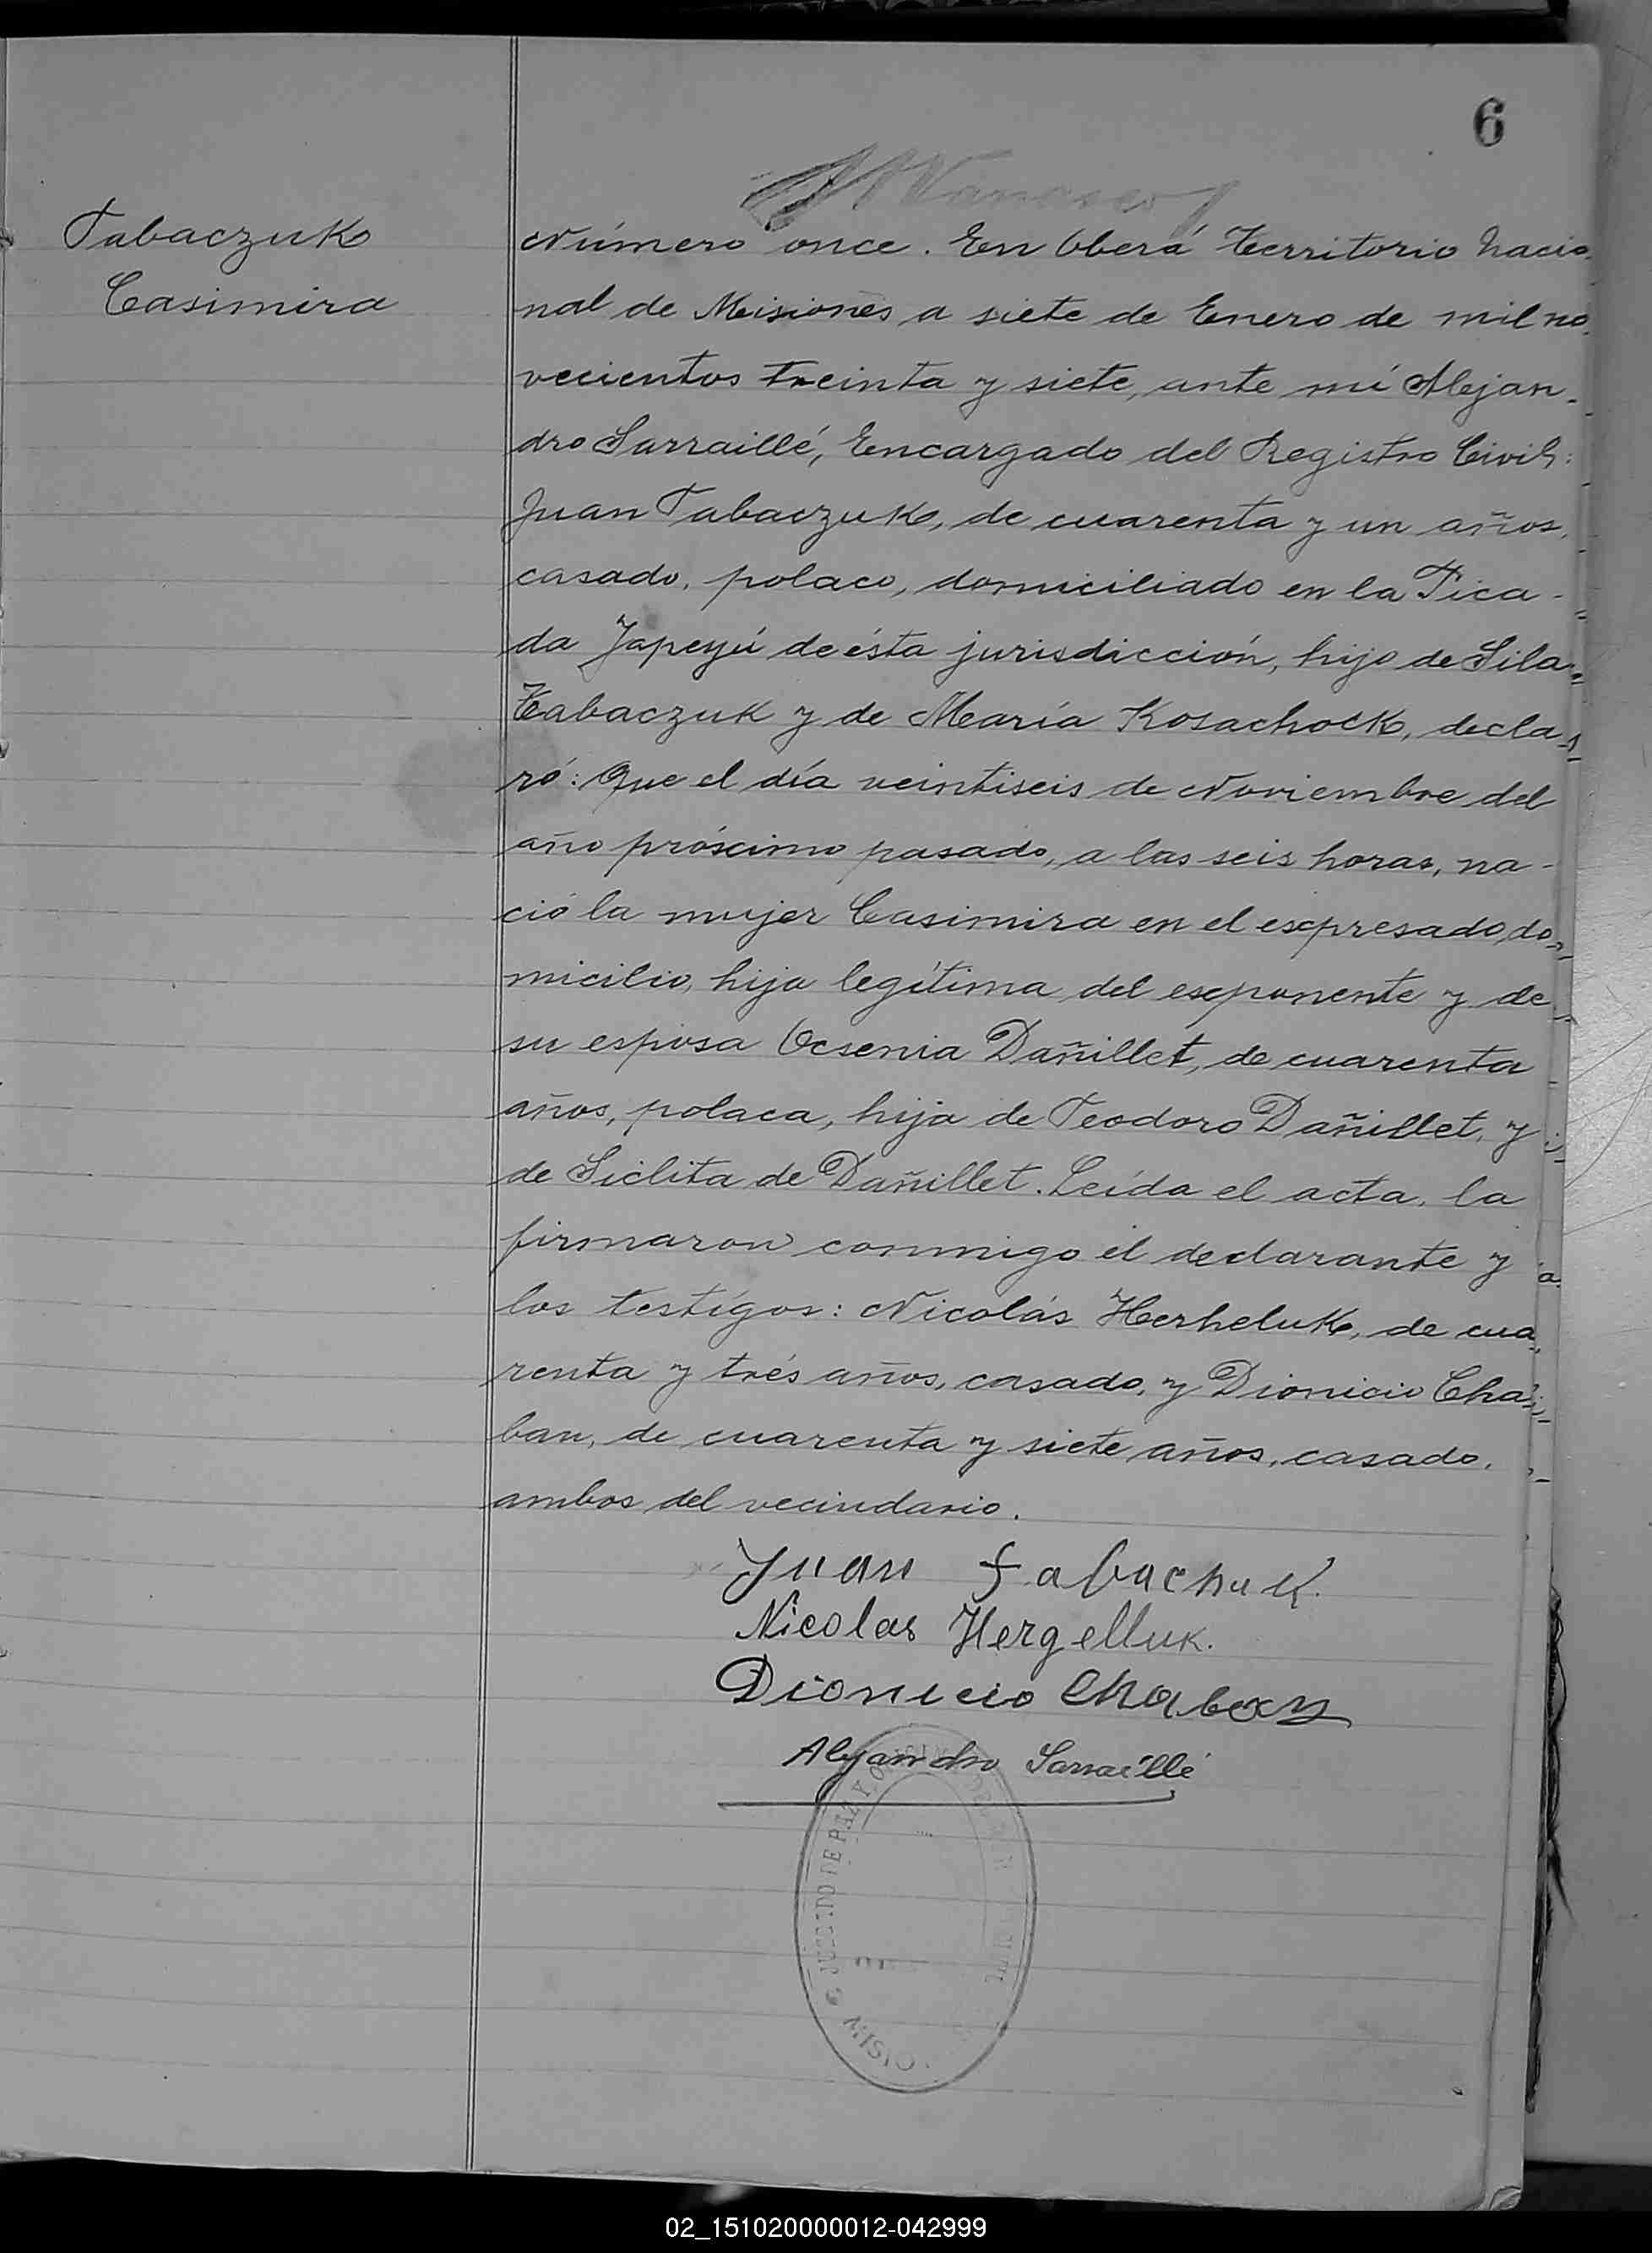 6
Tabaczuk
Casimira
Número once. En Oberá Territorio Nacio-
nal de Misiones a siete de Enero de mil no-
vecientos treinta y siete, ante mí Alejan-
dro Sarraillé, Encargado del Registro Civil:
Juan Tabaczuk, de cuarenta y un años,
casado, polaco, domiciliado en la Pica-
da Yapeyú de ésta jurisdicción, hijo de Sila
Tabaczuk y de María Kosachock, decla-
ró: Que el día veintiseis de Noviembre del
año próximo pasado, a las seis horas, na-
ció la mujer Casimira en el expresado do-
micilio, hija legítima del exponente y de
su esposa Ocsenia Dañillet, de cuarenta
años, polaca, hija de Teodoro Dañillet, y
de Siclita de Dañillet. Leída el acta, la
firmaron conmigo el declarante y
los testígos: Nicolás Herheluk, de cua-
renta y trés años, casado, y Dionicio Cha-
ban, de cuarenta y siete años, casado,
ambos del vecindario.
Juan Tabachuk.
Nicolas Hergelluk.
Dionicio Chaban
Alejandro Sarraillé
JUZGADO DE PAZ Y
02_151020000012-042999